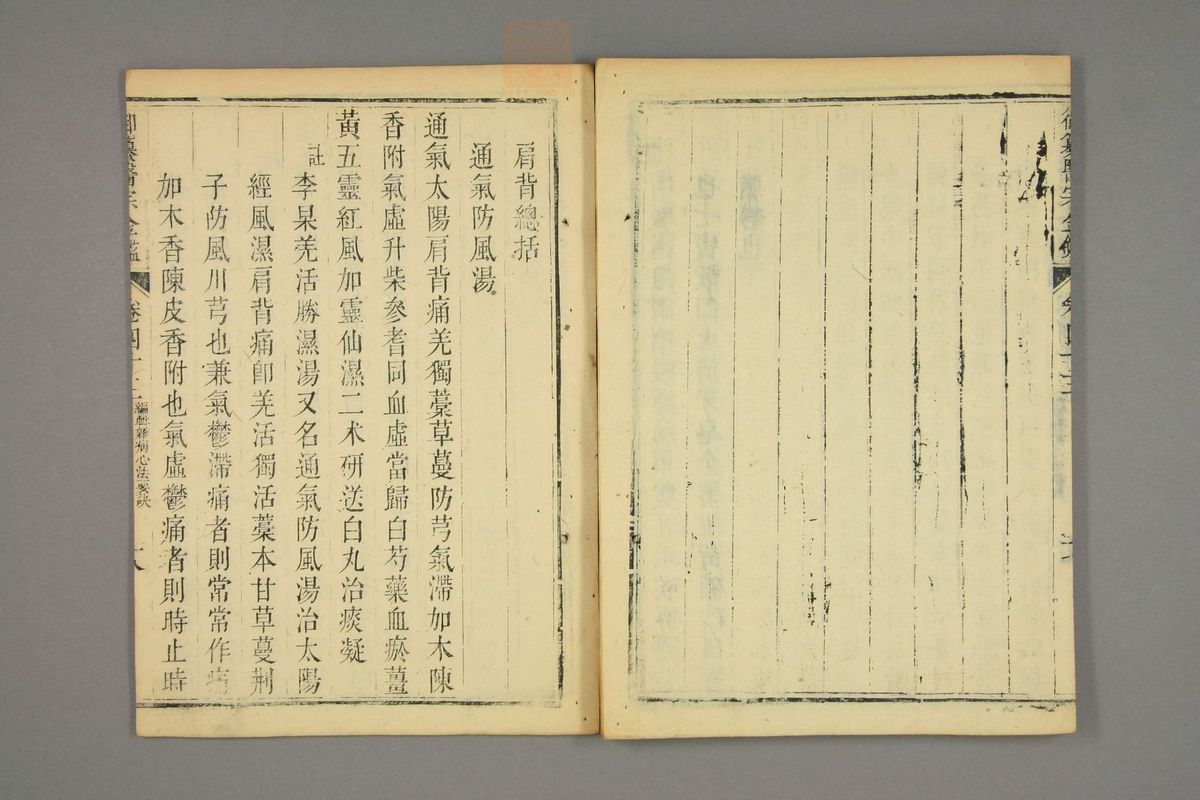 御纂醫宗金鑑
卷四十三
肩背總括
通氣防風湯
通氣太陽肩背痛羌獨藁草蔓防芎氣滯加木陳
香附氣虛升柴參耆同血虛當歸白芍藥血瘀薑
黃五靈紅風加靈仙濕二术研送白丸治痰凝
註李杲羌活勝濕湯又名通氣防風湯治太陽
經風濕肩背痛卽羌活獨活藁本甘草蔓荆
子防風川芎也兼氣鬱滯痛者則常常作痛
加木香陳皮香附也氣虛鬱痛者則時止時
御纂醫宗金鑑 卷四十三 編輯雜病心法要訣 十八